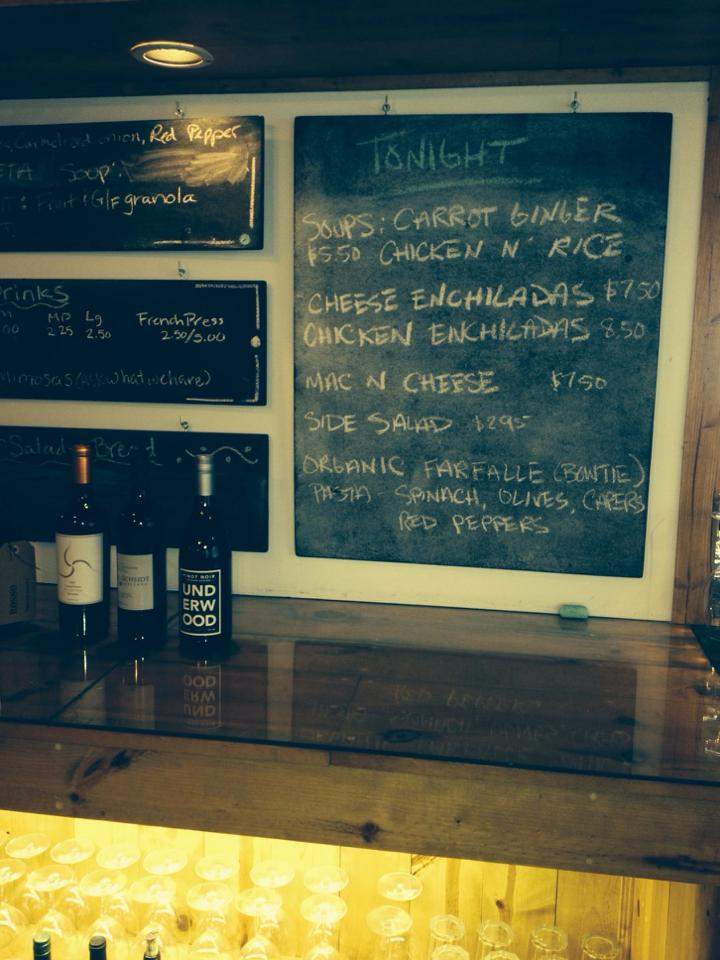 Carmelized onion, Red Pepper
Soup
Fruit & G/F granola
rinks
Md Lg French Press
2.25 2.50 2.50/3.00
Mimosas (ask what we have)
Salad Bread
TONIGHT
SOUPS: CARROT GINGER
$5.50 CHICKEN N' RICE
CHEESE ENCHILADAS $7.50
CHICKEN ENCHILADAS 8.50
MAC N CHEESE $7.50
SIDE SALAD $2.95
ORGANIC FARFALLE (BOWTIE)
PASTA SPINACH, OLIVES, CAPERS
RED PEPPERS
PINOT NOIR
UND
ERW
OOD